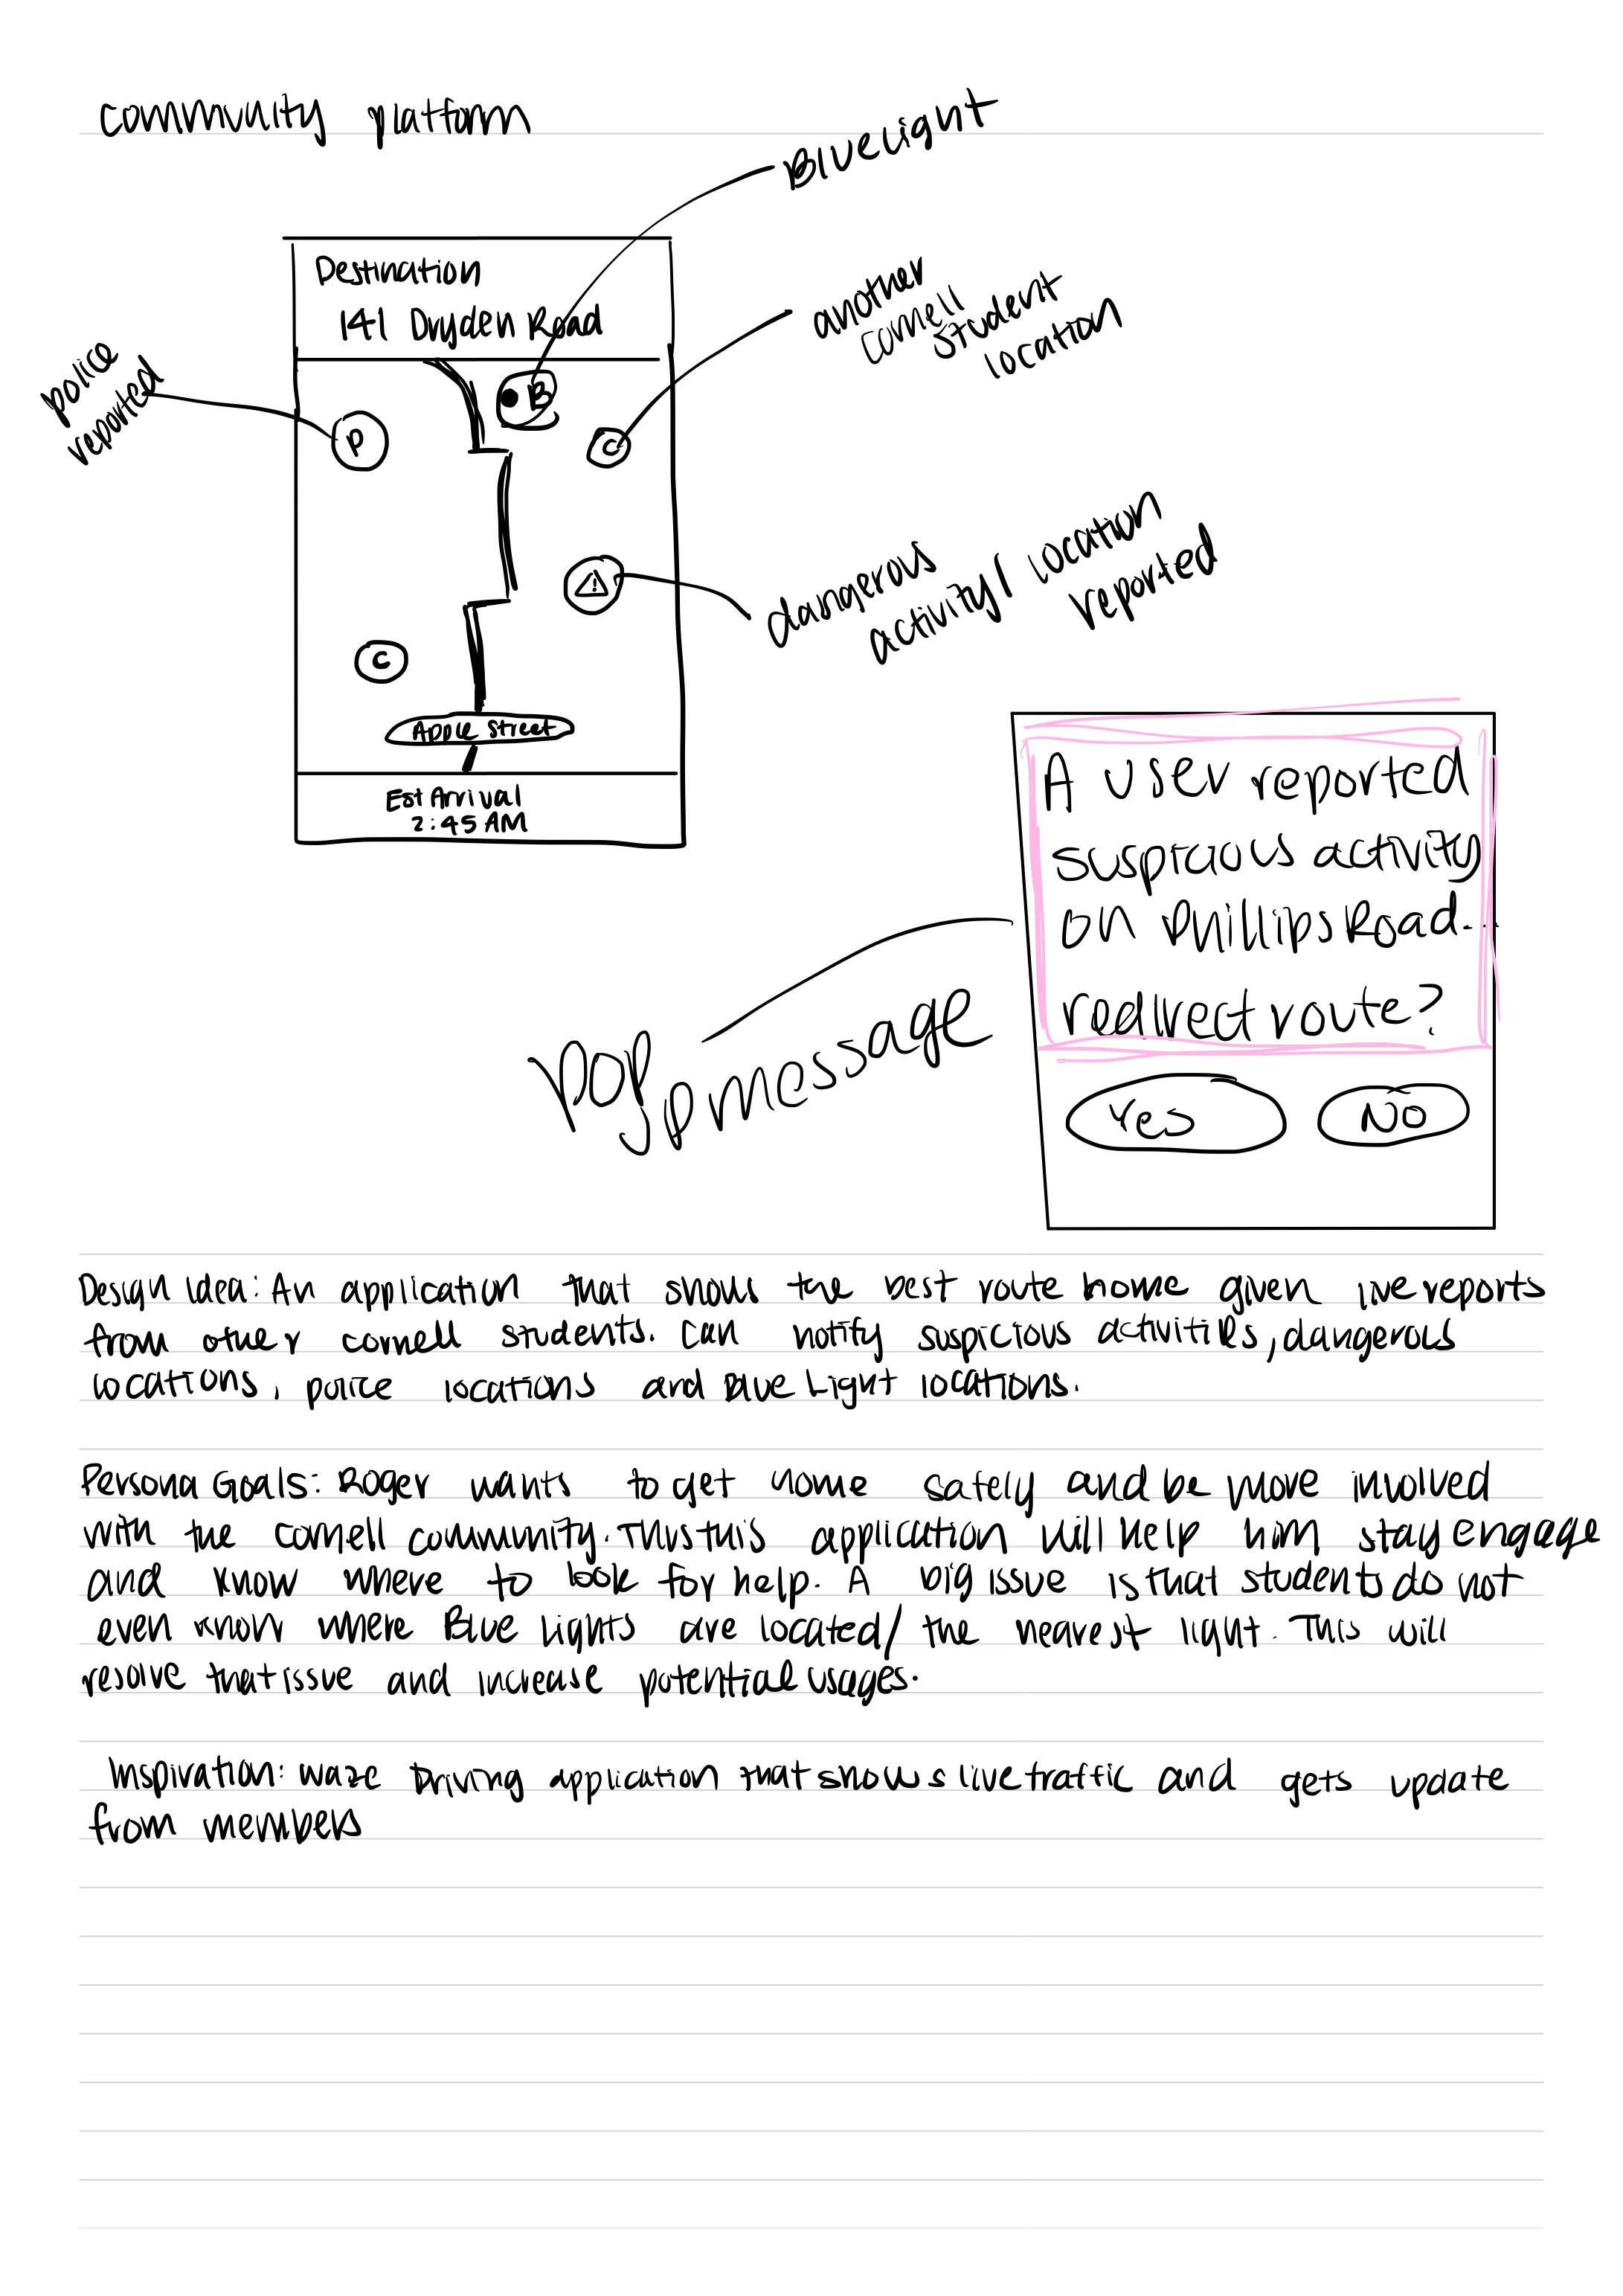 community platform
Bluelight
Destination
141 Dryden Road
another
cornell
student
location
police
reported
B
P
C
dangerous
activity/ location
reported
C
Apple Street
Est Arrival
2:45 AM
A user reported
suspicious activity
on Phillips Road..
redirect route?
Yes
No
pop up message
Design Idea: An application that shows the best route home given live reports
from other cornell students. Can notify suspicious activities, dangerous
locations, police locations and Blue Light locations.
Persona Goals: Roger wants to get home safely and be more involved
with the Cornell community. Thus this application will help him stay engage
and know where to look for help. A big issue is that students do not
even know where Blue Lights are located/ the nearest light. This will
resolve that issue and increase potential usages.
Inspiration: waze Driving application that shows live traffic and gets update
from members